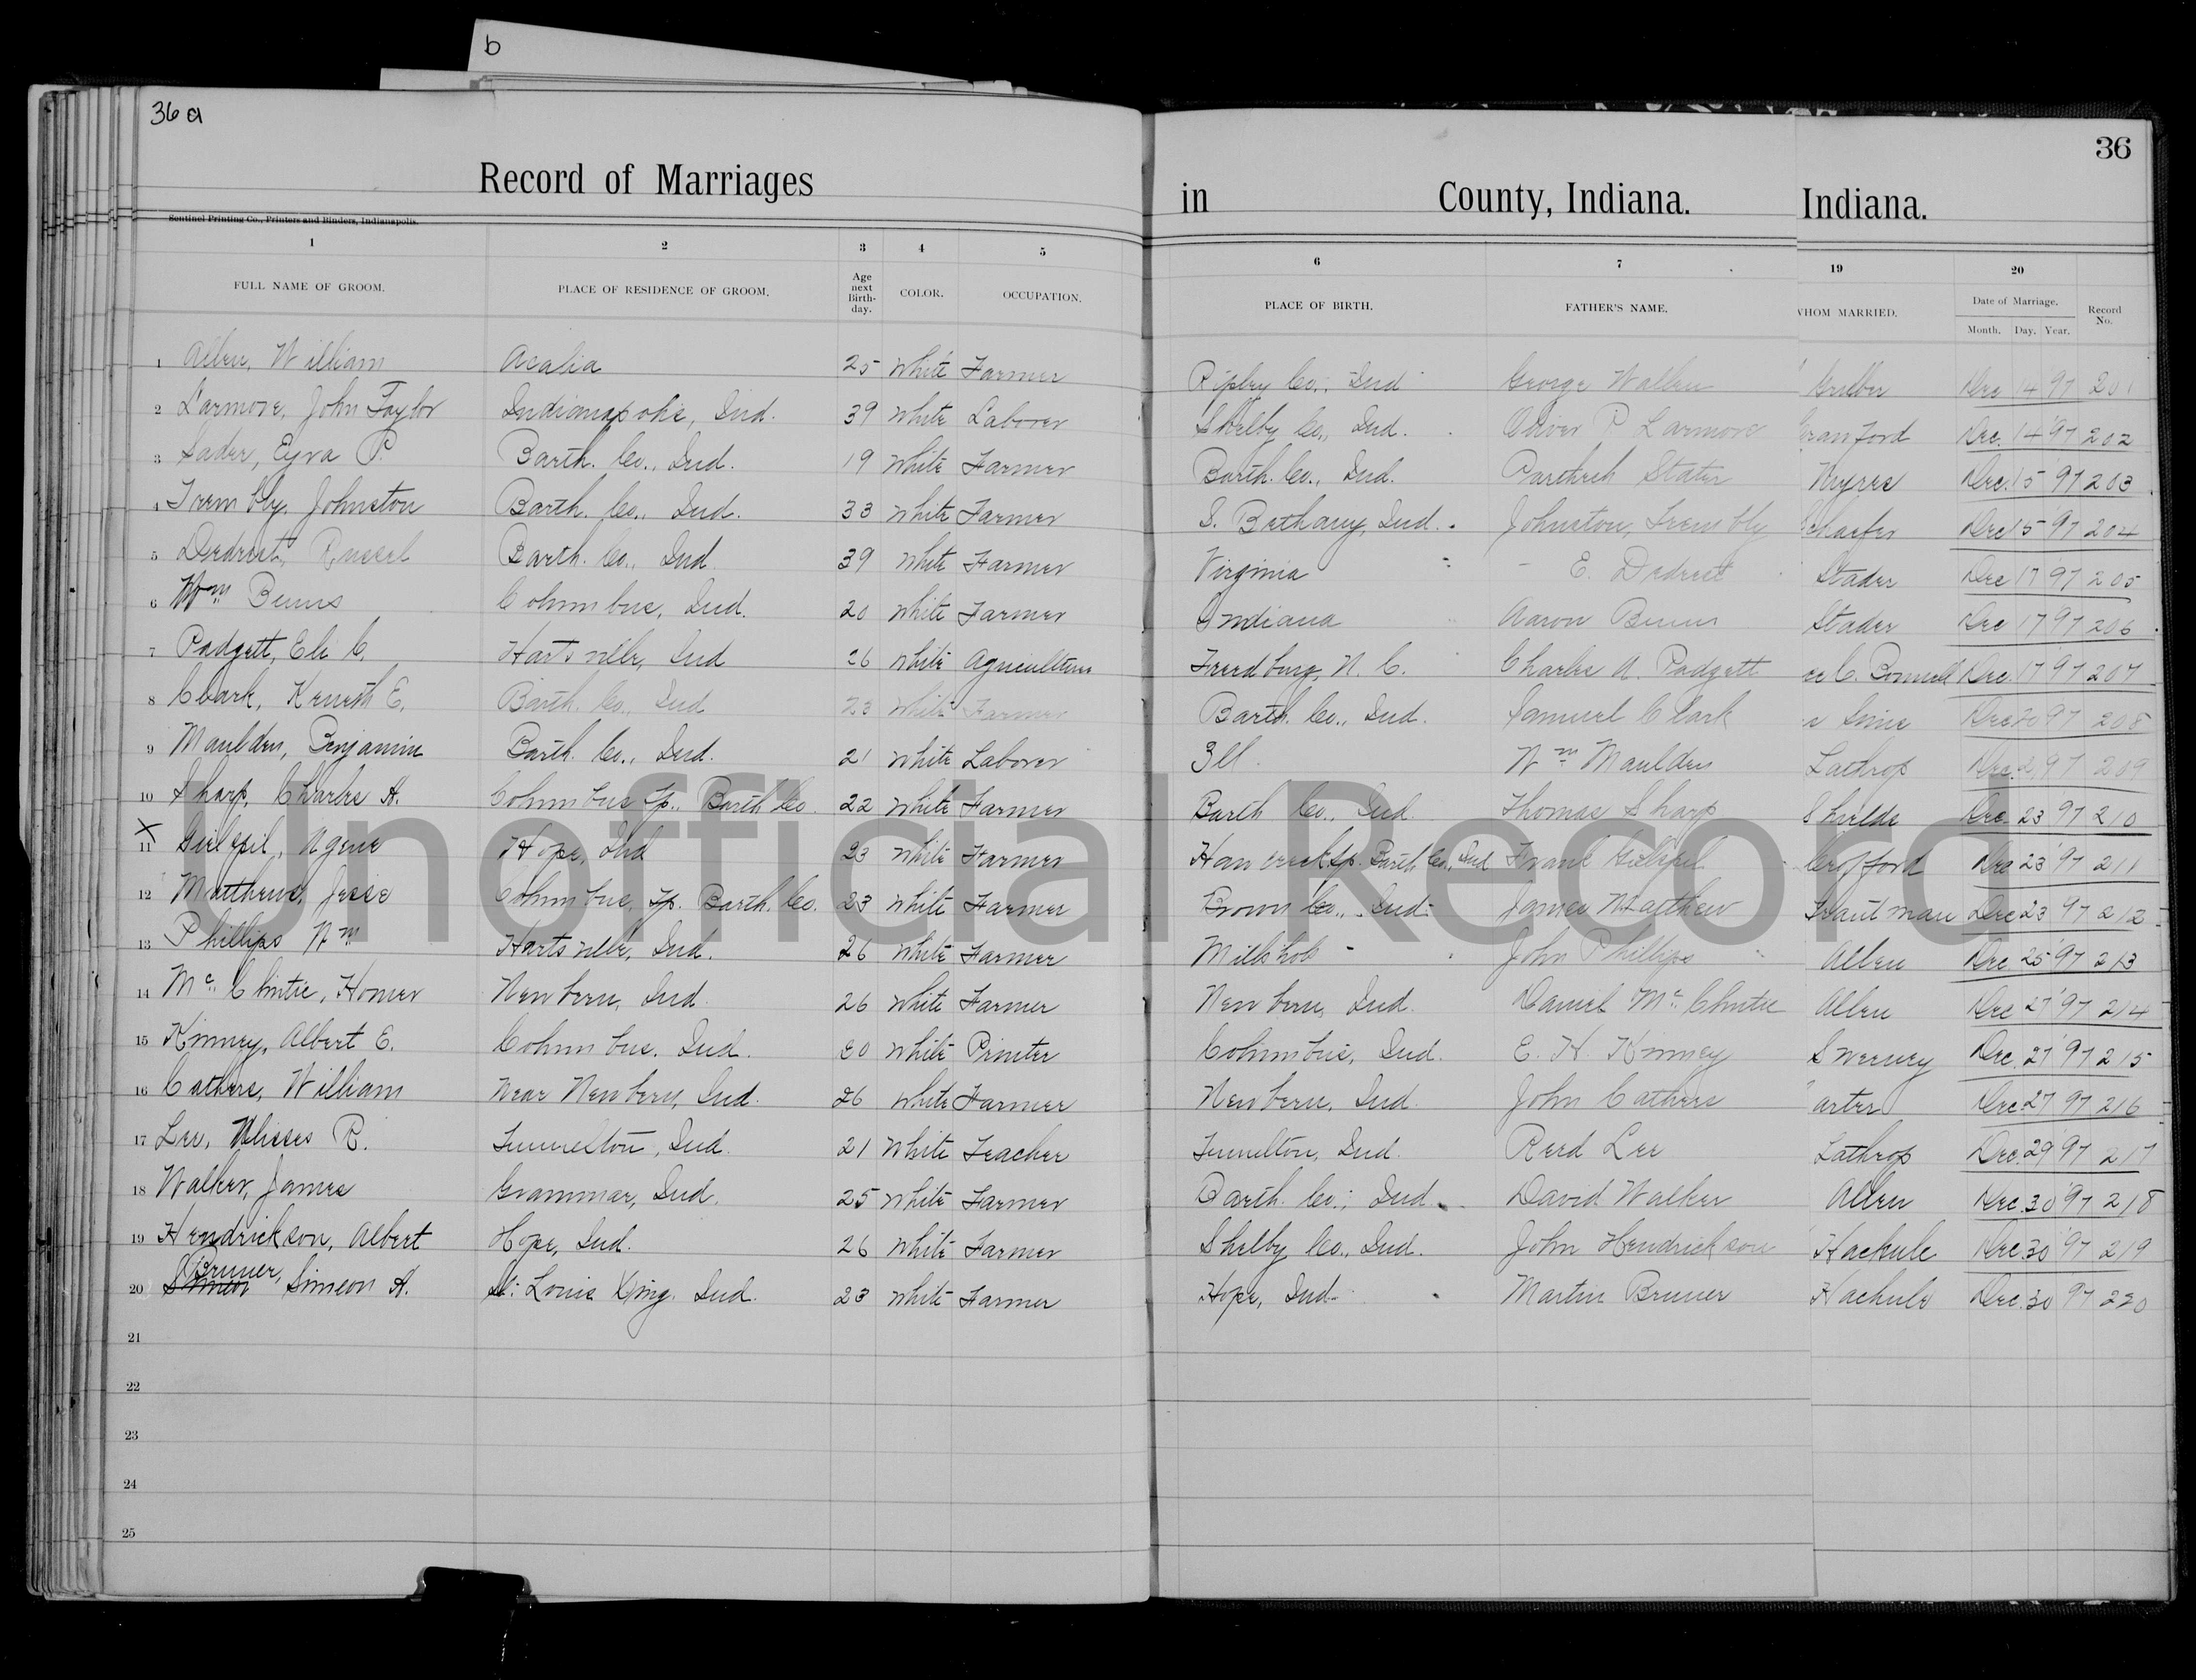 b
36 a
36
Record of Marriages in County, Indiana. Indiana.
Sentinel Printing Co., Printers and Binders, Indianapolis.
1 2 3 4 5 6 7 19 20
FULL NAME OF GROOM. PLACE OF RESIDENCE OF GROOM. Age next Birth-day. COLOR. OCCUPATION. PLACE OF BIRTH. FATHER'S NAME. WHOM MARRIED. Date of Marriage. Record No.
Month. Day. Year.
1 Allen, William Azalia 25 White Farmer Ripley Co., Ind George Dec 14 97 201
2 Larmore, John Taylor Indianapolis, Ind. 39 White Laborer Shelby Co., Ind. Oliver P Larmore Cranford Dec. 14 '97 202
3 Ezra P. Barth. Co., Ind. 19 White Farmer Barth. Co., Ind. Stater Dec. 15 97 203
4 Trembly, Johnston Barth. Co., Ind. 33 White Farmer S. Bethany, Ind. Johnston, Trembly Schaefer Dec 15 '97 204
5 Russel Barth. Co., Ind 39 White Farmer Virginia E. Stader Dec 17 '97 205
6 Wm Burns Columbus, Ind. 20 White Farmer Indiana Aaron Burns Stader Dec 17 97 206
7 Padgett, Eli C. Hartsville, Ind 26 White Agriculture N. C. Charles A. Padgett Dec. 17 97 207
8 Clark, Keneth E. Barth. Co., Ind 23 White Farmer Barth. Co., Ind. Samuel Clark Dec 20 97 208
9 Maulden, Benjamin Barth. Co., Ind. 21 White Laborer Ill. Wm Maulden Lathrop Dec. 97 209
10 Sharp, Charles H. Columbus Tp., Barth Co. 22 White Farmer Barth Co., Ind. Thomas Sharp Shields Dec. 23 '97 210
X
11 Hope, Ind 23 White Farmer Haw creek Tp. Barth Co., Ind Frank Crofford Dec 23 '97 211
12 Matthews, Jesse Columbus, Tp. Barth. Co. 23 White Farmer Brown Co., Ind. James Matthew Trautman Dec 23 97 212
13 Phillips Wm Hartsville, Ind. 26 White Farmer John Phillips Allen Dec 25 '97 213
14 Mc Clintic, Homer Newbern, Ind. 26 White Farmer Newbern, Ind. Daniel Mc Clintic Allen Dec 27 '97 214
15 Kinney, Albert E. Columbus, Ind. White Printer Columbus, Ind. E. H. Kinney Sweeney Dec. 27 '97 215
16 Cathers, William Near Newbern, Ind. 26 White Farmer Newbern, Ind. John Cathers arter Dec. 27 97 216
17 Lee, Ulisses R. Tunnelton, Ind. 21 White Teacher Tunnelton, Ind. Reed Lee Lathrop Dec. 29 '97 217
18 Walker, James Grammar, Ind. 25 White Farmer Barth. Co.; Ind. David Walker Allen Dec. 30 '97 218
19 Hendrickson, Albert Hope, Ind. 26 White Farmer Shelby Co., Ind. John Hendrickson Hackule Dec. 30 '97 219
Bruner,
20 Simeon H. St. Louis Xing. Ind. 23 White Farmer Hope, Ind. Martin Bruner Hackule Dec. 30 97 220
21
22
23
24
25
Unofficial Record